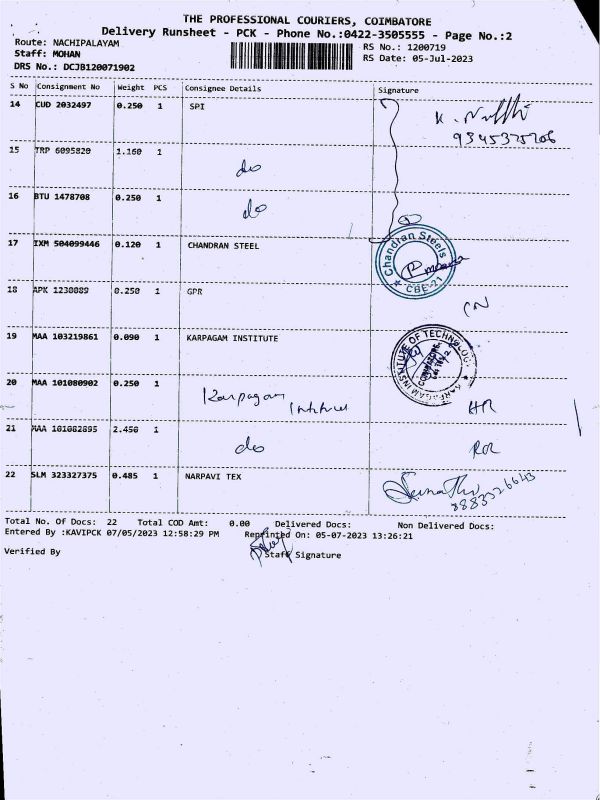 THE PROFESSIONAL COURIERS, COIMBATORE
Delivery Runsheet - PCK - Phone No.:0422-3505555 - Page No.:2
Route: NACHIPALAYAM
RS No.: 1200719
Staff: MOHAN
RS Date: 05-Jul-2023
DRS No.: DCJB120071902
S No Consignment No Weight PCS Consignee Details Signature
14 CUD 2032497 0.250 1 SPI
9345375206
15 TRP 6095820 1.160 1 do
16 BTU 1478708 0.250 1 do
17 IXM 504099446 0.120 1 CHANDRAN STEEL
Chandran Steels
CBE-21
18 APK 1230089 0.250 1 GPR
19 MAA 103219861 0.090 1 KARPAGAM INSTITUTE
KARPAGAM INSTITUTE OF TECHNOLOGY
20 MAA 101080902 0.250 1 Karpagam HR
21 MAA 101082895 2.450 1 do
22 SLM 323327375 0.485 1 NARPAVI TEX
8883526643
Total No. Of Docs: 22 Total COD Amt: 0.00 Delivered Docs: Non Delivered Docs:
Entered By :KAVIPCK 07/05/2023 12:58:29 PM Reprinted On: 05-07-2023 13:26:21
Verified By Staff Signature